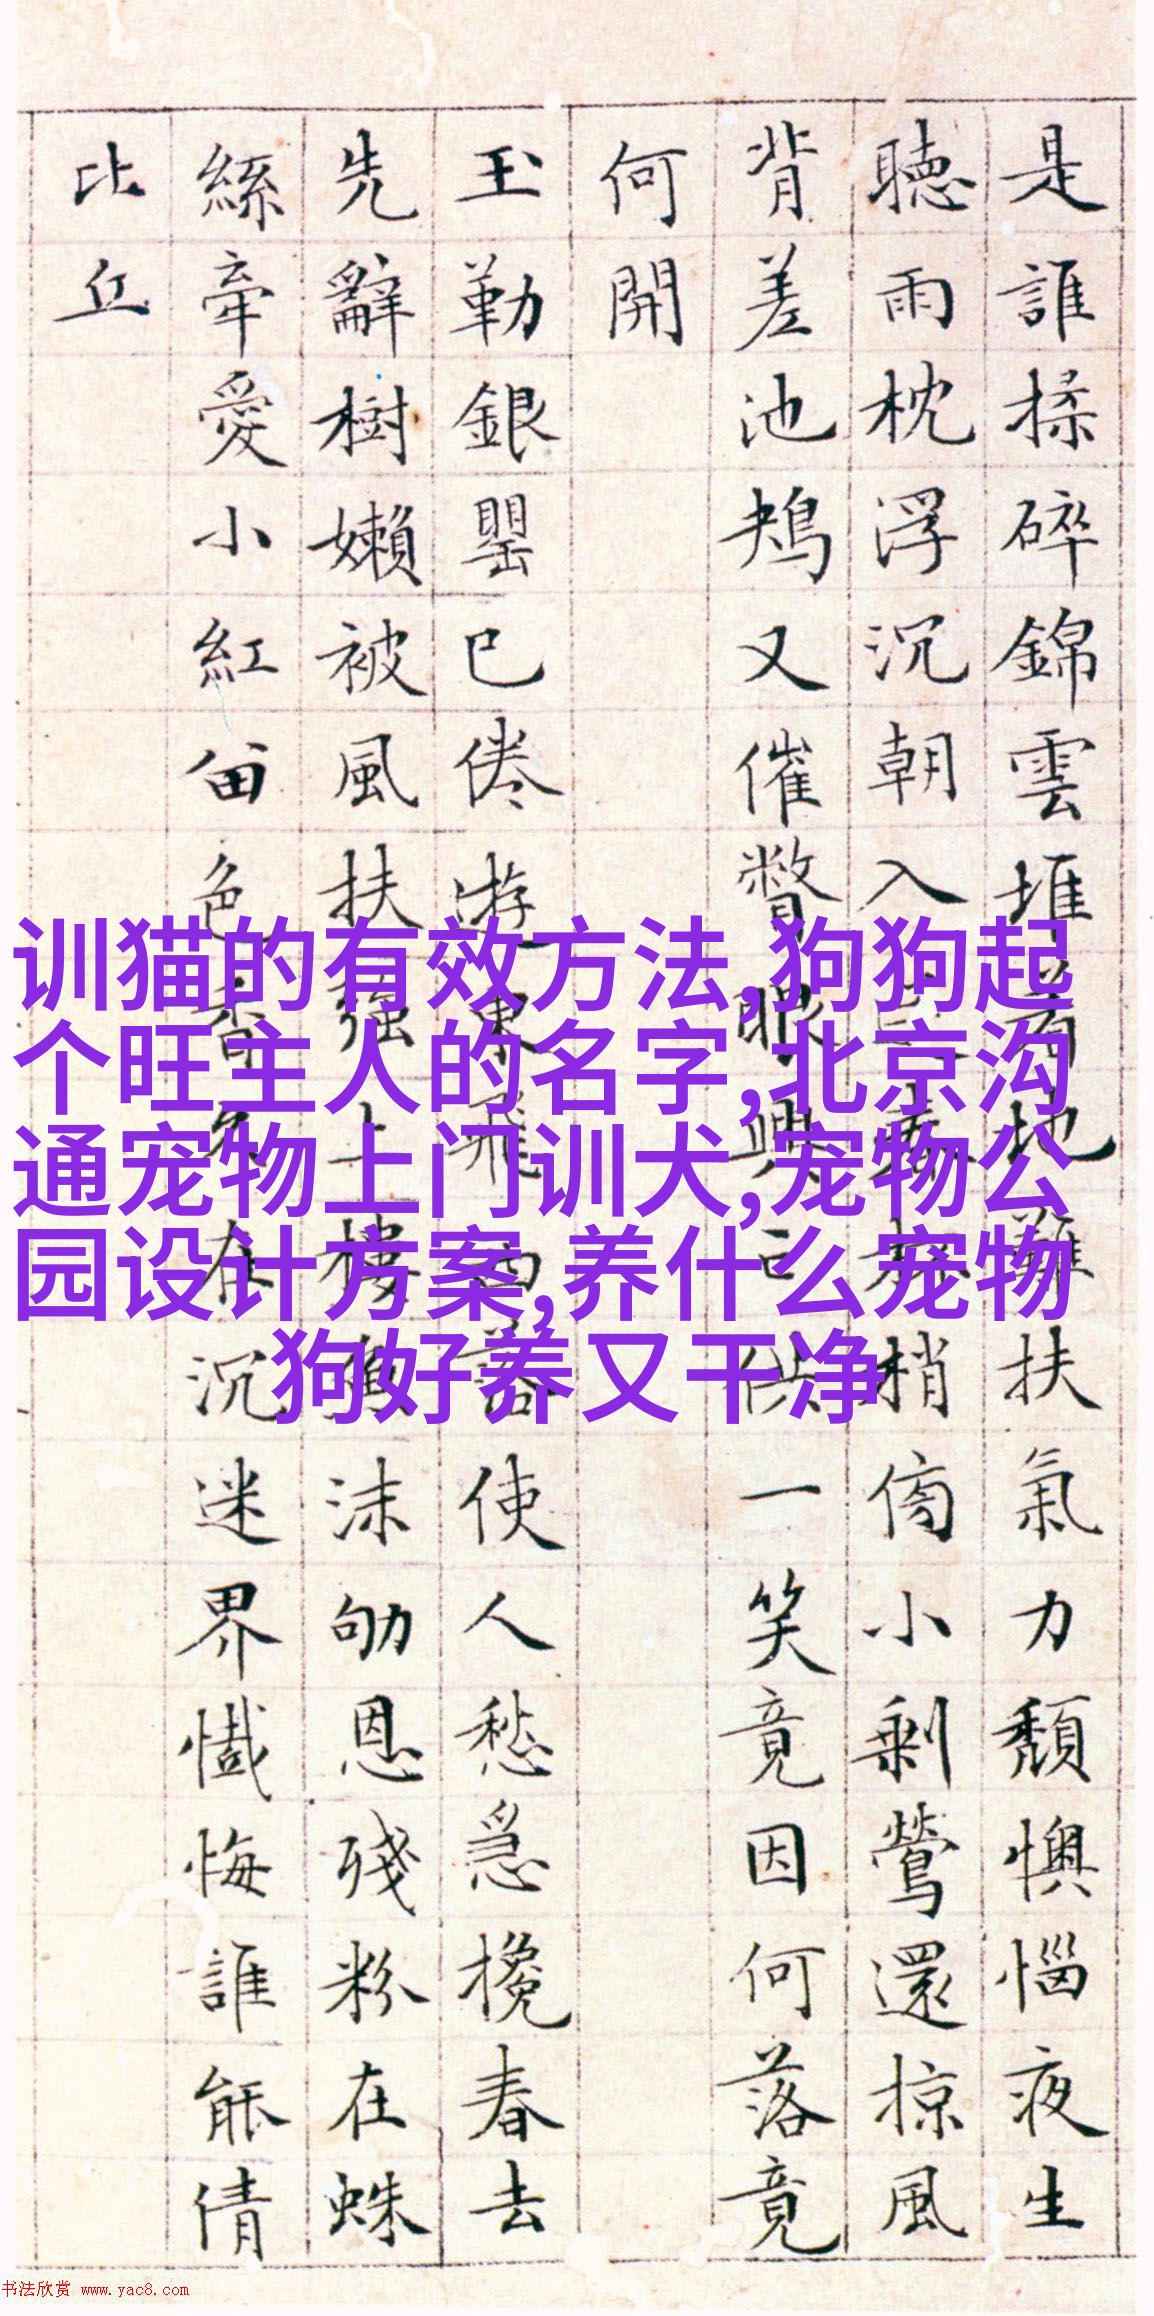 是誰揉碎錦雲堆着地難扶氣力頹懊惱夜生
聽雨枕浮沉朝入梢傍小剩鶯還掠風
背差池鴂又催瞥眼興亡供一笑竟因何落竟
何開
玉勒銀罌已倦遊東飛西落使人愁急攙春去
先辭樹嬾被風扶強上樓沫劬恩殘粉在蛛
絲牽愛小紅留色香久在沉迷界懺悔誰能倩
比丘
训猫的有效方法,狗狗起
个旺主人的名字,北京沟
通宠物上门训犬,宠物公
园设计方案,养什么宠物
狗好养又干净
书法欣赏 www.yac8.com